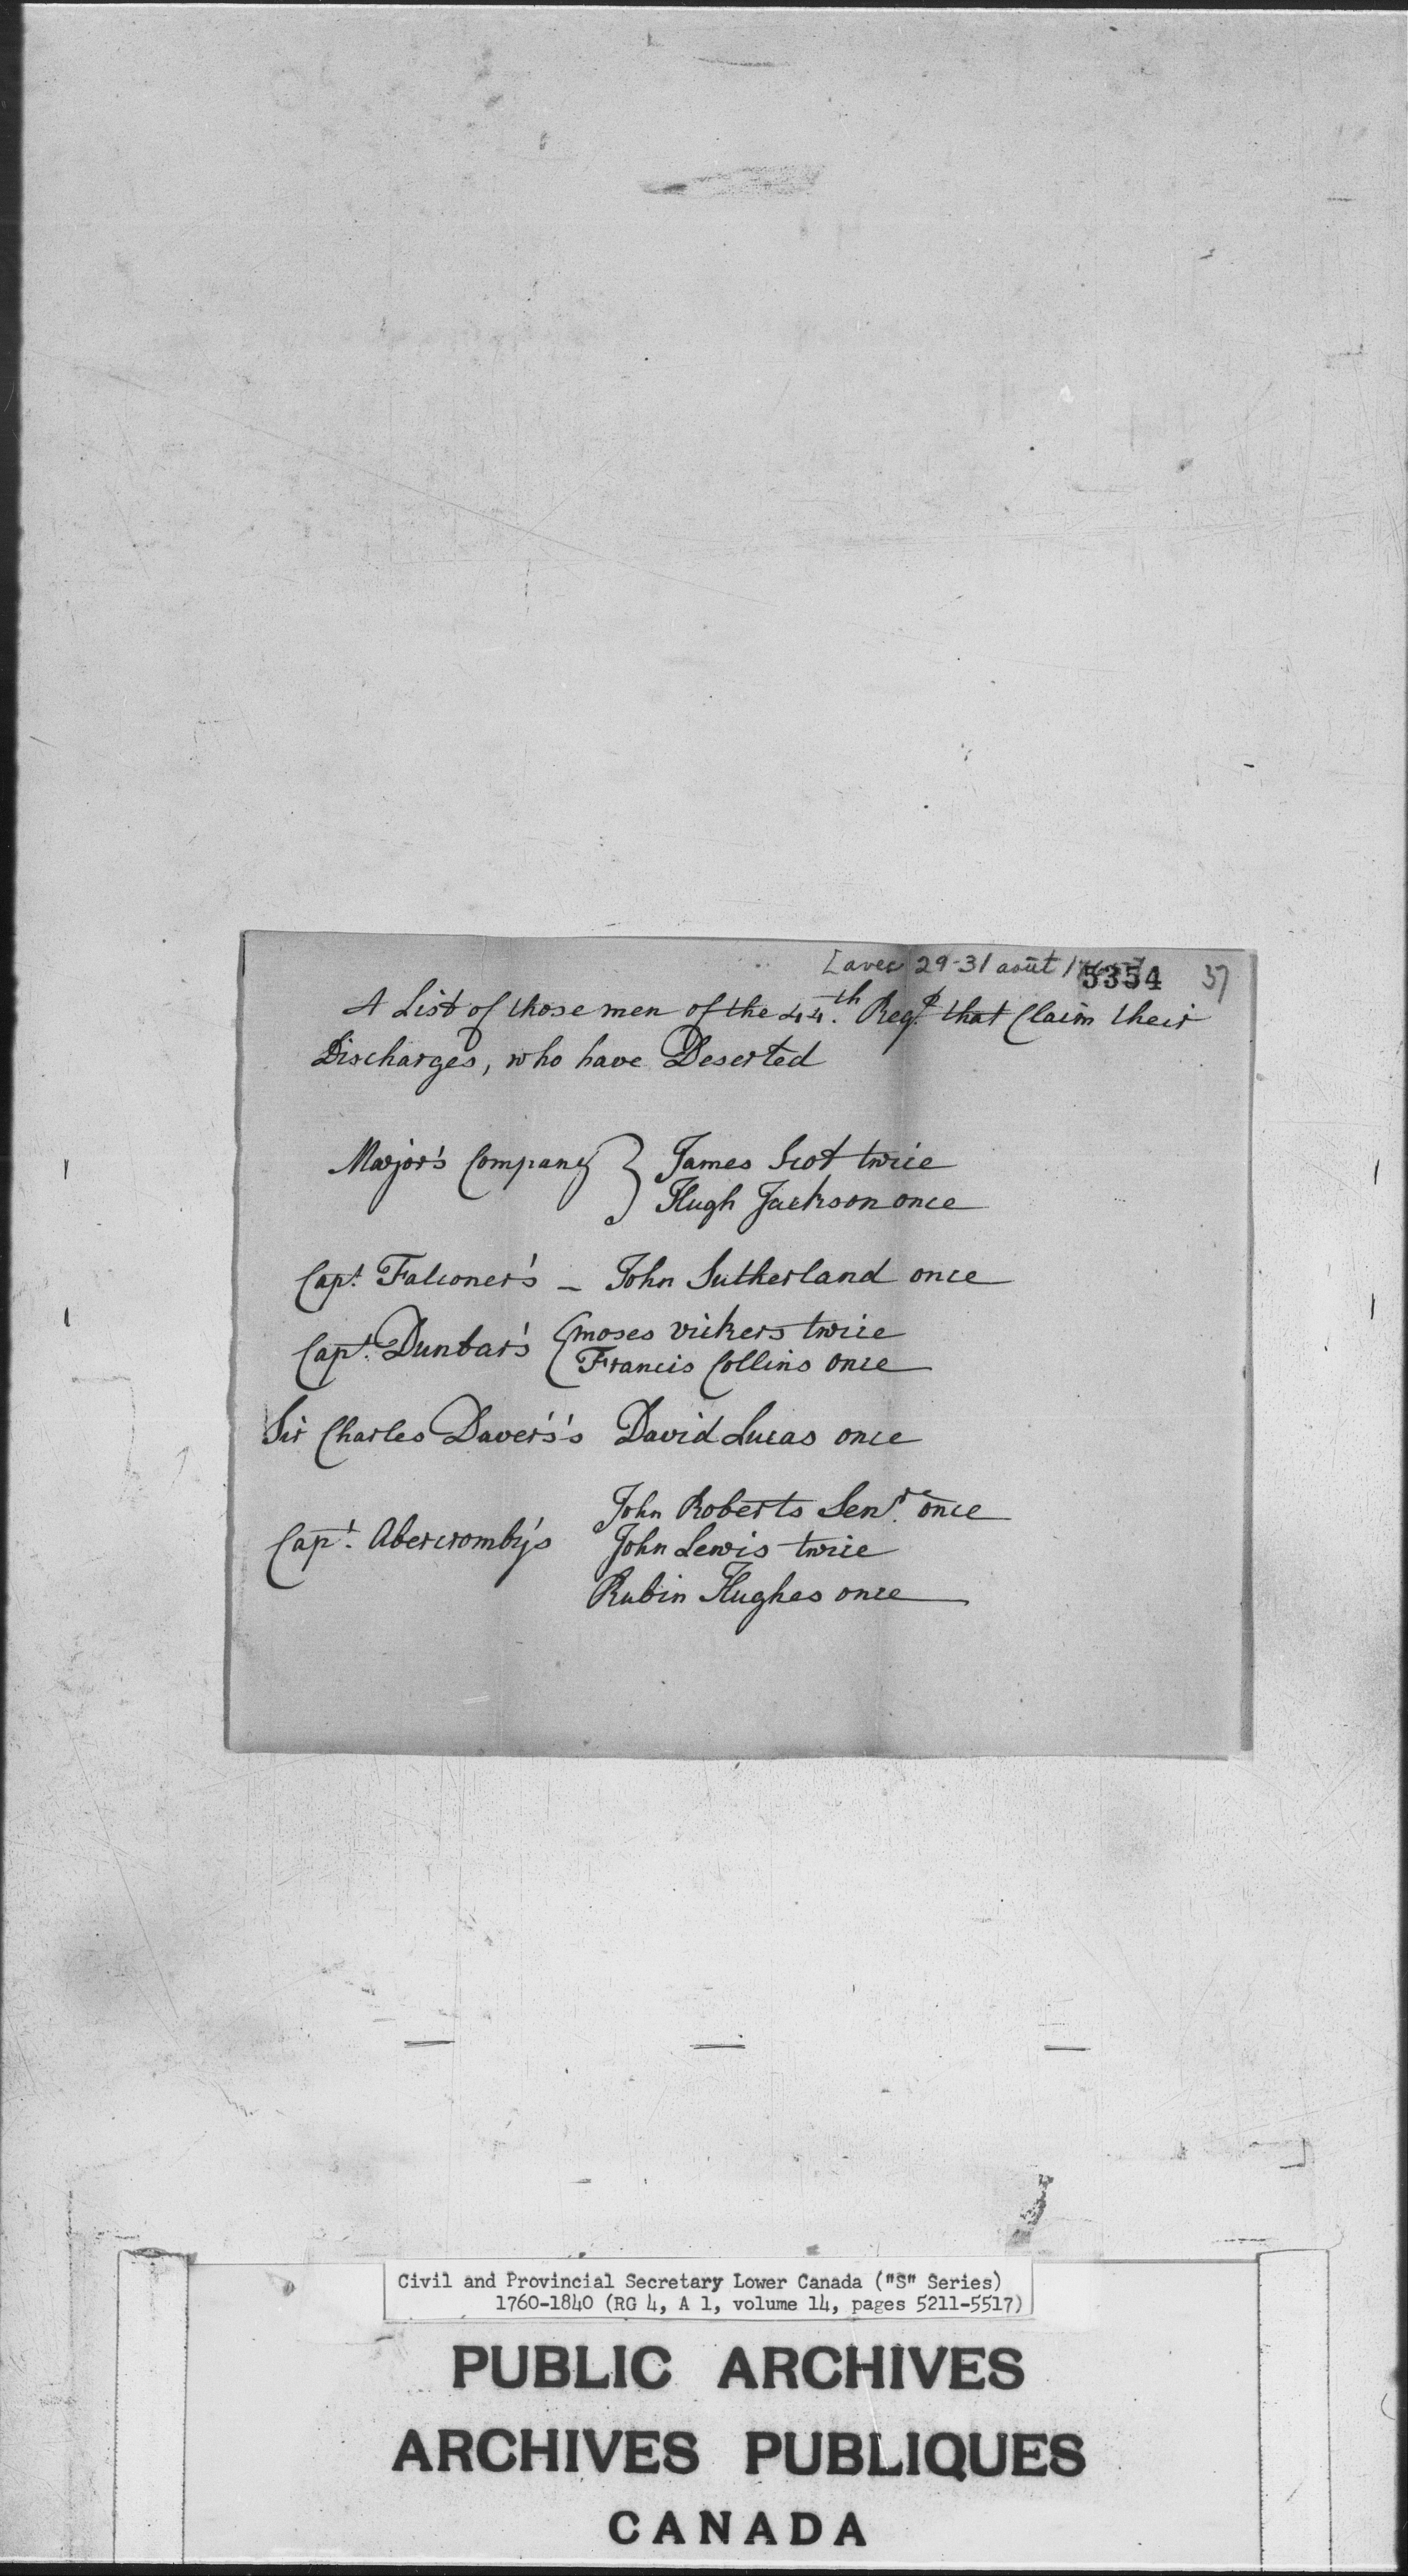 [avec 29-31 août
5354
37
A List of those men of the 44.th Reg.t that Claim their
Discharges, who have Deserted
Major's Company } James Scot twice
Hugh Jackson once
Capt. Falconer's – John Sutherland once
Capt. Dunbar's { moses vickers twice
Francis Collins once
Sir Charles Davers's David Lucas once
John Roberts Senr. once
Capt. Abercromby's John Lewis twice
Rubin Hughes once
Civil and Provincial Secretary Lower Canada ("S" Series)
1760-1840 (RG 4, A 1, volume 14, pages 5211-5517)
PUBLIC ARCHIVES
ARCHIVES PUBLIQUES
CANADA